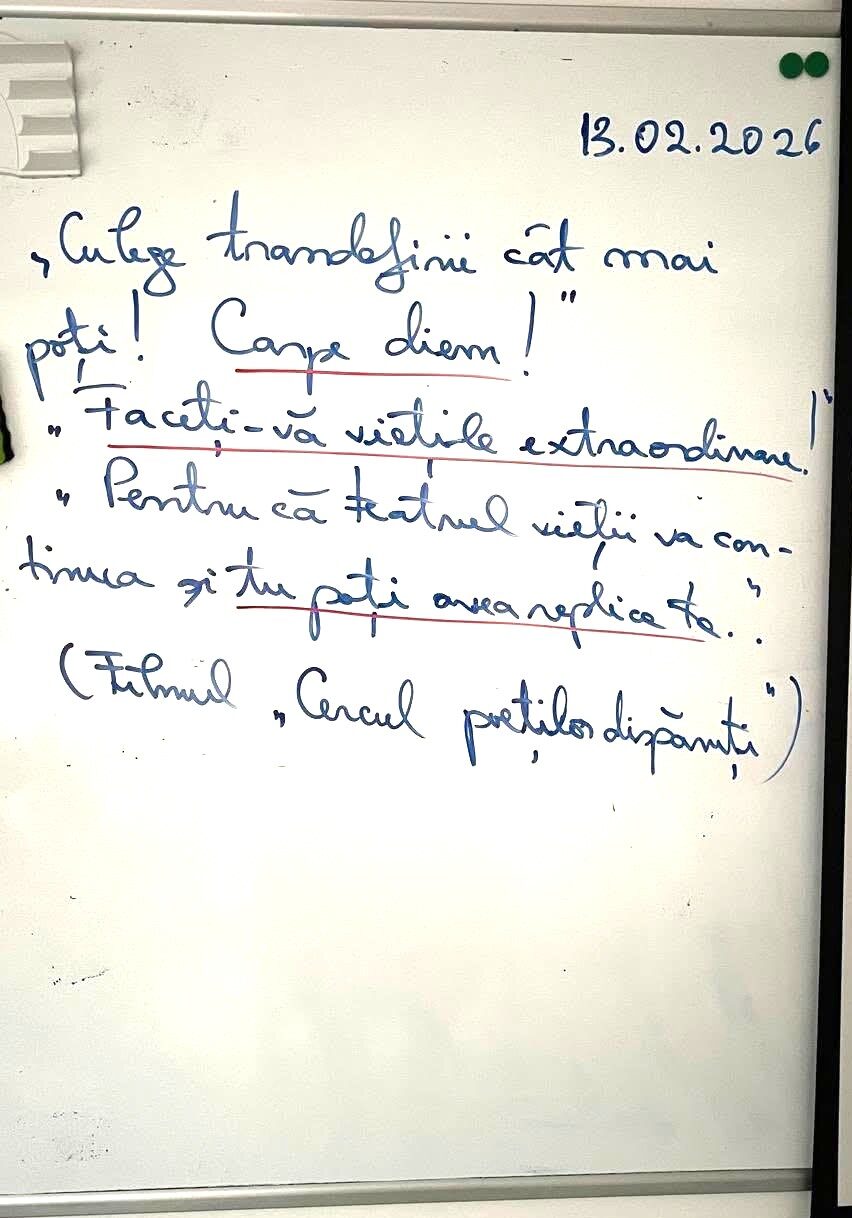 13.02.2026
„Culege trandafirii cât mai
poți! Carpe diem!"
"Faceți-vă viețile extraordinare!"
"Pentru că teatrul vieții va con-
tinua și tu poți avea replica ta."
(Filmul „Cercul poeților dispăruți")